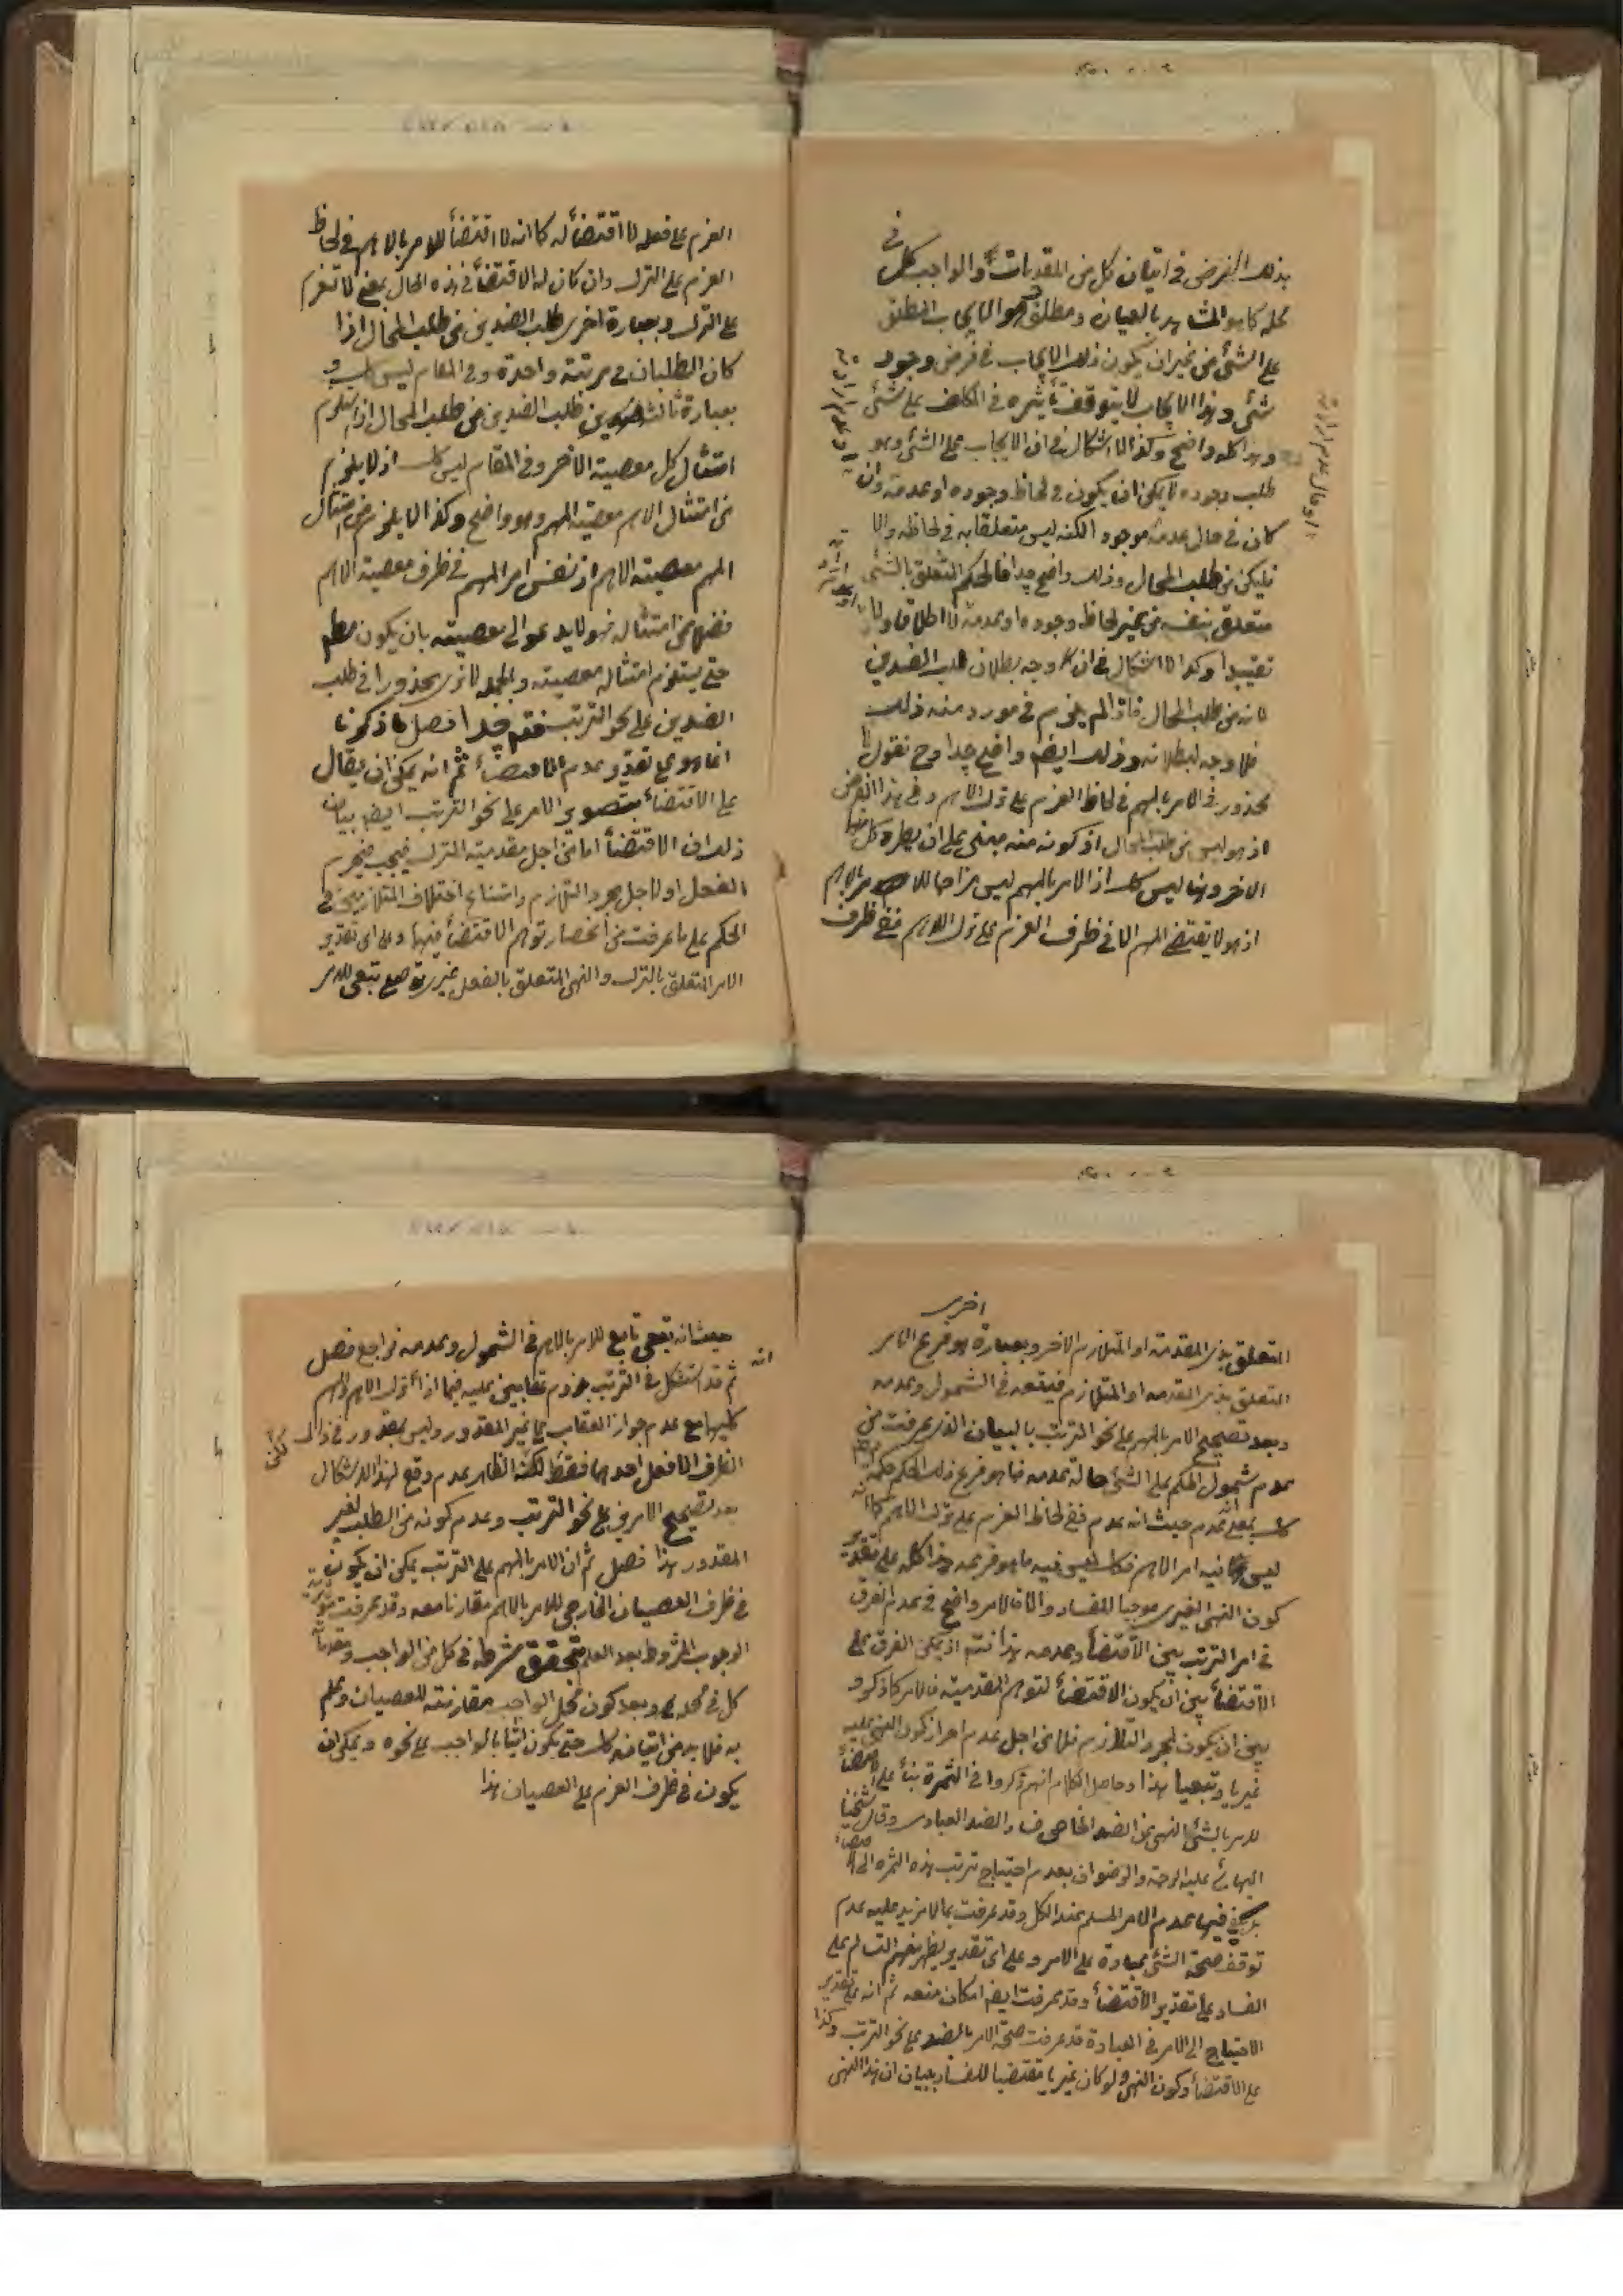 بذلك الفرض فى اتيان كل من المقدمات والواجب كل فى
محله كما هو المشاهد بالعيان ومطلق وهو الايجاب المطلق
على الشئ من غير ان يكون ذلك الايجاب فى فرض وجود
شئ وهذا الايجاب لا يتوقف تأثيره فى المكلف على شئ
وهذا كله واضح وكذا لا اشكال فى ان الايجاب على الشئ وهو
طلب وجوده لا يمكن ان يكون فى لحاظ وجوده او عدمه وان
كان فى حال عدمه موجود الكنه ليس متعلقا به فى لحاظه والا
فليكن من طلب المحال وذلك واضح جدا فالحكم المتعلق بالشئ
متعلق بنفسه من غير لحاظ وجوده او عدمه لا اطلاقا ولا
تقييدا وكذا لا اشكال فى ان وجه بطلان طلب الضدين
لانه من طلب المحال فاذا لم يلزم فى مورد منه ذلك
فلا وجه لبطلانه وذلك ايضا واضح جدا وح نقول لا
محذور فى الامر بالمهم فى لحاظ العزم على ترك الاهم وفى هذا الفرض
اذ هو ليس من طلب المحال اذ كونه منه مبنى على ان يطرد كل منهما
الاخر وهنا ليس كك اذ الامر بالمهم ليس مزاحما للامر بالاهم
اذ هو لا يقتضى المهم الا فى ظرف العزم على ترك الاهم ففى ظرف
العزم على فعله لا اقتضأ له كما انه لا اقتضأ للامر بالاهم فى لحاظ
العزم على الترك وان كان له الاقتضأ فى هذه الحال بمعنى لا تعزم
على الترك وبعبارة اخرى طلب الضدين من طلب المحال اذا
كان الطلبان فى مرتبة واحدة وفى المقام ليس كك و
بعبارة ثالثة طلب الضدين من طلب المحال اذا استلزم
امتثال كل معصية الاخر وفى المقام ليس كك اذ لا يلزم
من امتثال الاهم معصية المهم وهو واضح وكذا لا يلزم من امتثال
المهم معصية الاهم اذ نفس امر المهم فى ظرف معصية الاهم
فضلا من امتثاله فهو لا يدعو الى معصيته بان يكون
حتى يستلزم امتثاله معصيته وبالجملة لا نرى محذورا فى طلب
الضدين على نحو الترتب فتم جدا فصل ما ذكرنا
انما هو على تقدير عدم الاقتضأ ثم انه يمكن ان يقال
على الاقتضأ بتصوير الامر على نحو الترتب ايضا بيان
ذلك ان الاقتضأ اما من اجل مقدمية الترك فيجب فيحرم
الفعل او لاجل مجرد التلازم وامتناع اختلاف المتلازمين فى
الحكم على ما عرفت من انحصار توهم الاقتضأ فيهما وعلى اى تقدير
الامر المتعلق بالترك والنهى المتعلق بالفعل غيرى تبعى للامر
اخرى
المتعلق بذى المقدمة او المتلازم الاخر وبعبارة هو فرع الامر
المتعلق بذى المقدمة او المتلازم فيتبعه فى الشمول وعدمه
وبعد تصحيح الامر بالمهم على نحو الترتب بالبيان الذى عرفت من
عدم شمول الحكم على الشئ حالة عدمه فما هو فرع ذلك الحكم حكمه
كك بمعنى حيث انه عدم ففى لحاظ العزم على ترك الاهم كما انه
ليس فيه امر الاهم فكك ليس فيه ما هو فرعه هذا كله على تقدير
كون النهى الغيرى موجبا للفساد والا فالامر واضح فى عدم الفرق
فى امر الترتب بين الاقتضأ وعدمه هذا فتم اذ يمكن الفرق على
الاقتضأ بين ان يكون الاقتضأ لتوهم المقدمية فالامر كما ذكر و
بين ان يكون لمجرد التلازم فلا من اجل عدم احراز كون النهى عليه
غيريا وتبعيا هذا وحاصل الكلام انهم ذكروا فى الثمرة بنأ على اقتضأ
الامر بالشئ النهى عن الضد الخاص فساد الضد العبادى وقال شيخنا
البهائى عليه الرحمة والرضوان بعدم احتياج ترتب هذه الثمره الى الاقتضأ
بل يكفى فيها عدم الامر المسلم عند الكل وقد عرفت بما لا مزيد عليه عدم
توقف صحة الشئ عبادة على الامر وعلى اى تقدير يظهر منهم التسالم على
الفساد على تقدير الاقتضأ وقد عرفت ايضا امكان منعه ثم انه على تقدير
الاحتياج الى الامر فى العبادة قد عرفت صحة الامر بالضد على نحو الترتب وكذا
على الاقتضأ وكون النهى ولو كان غيريا مقتضيا للفساد ببيان ان هذا النهى
حيث انه تبعى تابع للامر بالاهم فى الشمول وعدمه فراجع فصل
ثم قد استشكل فى الترتب بلزوم عقابين عليه فيما اذا ترك الاهم والمهم
كليهما مع عدم جواز العقاب على غير المقدور وليس بمقدور فى ذلك
الظرف الا فعل احدهما فقط لكنه الظاهر عدم وقع لهذا الاشكال
بعد تصحيح الامرين على نحو الترتب وعدم كونه من الطلب لغير
المقدور هذا فصل ثم ان الامر بالمهم على الترتب يمكن ان يكون
فى ظرف العصيان الخارجى للامر بالاهم مقارنا معه وقد عرفت
الوجوب المشروط بعد العلم بتحقق شرطه فى كل من الواجب ومقدماته
كل فى محله وبعد كون محل الواجب مقارنته للعصيان وعلم
به فلا بد من اتيانه كك حتى يكون اتيا بالواجب على نحوه ويمكن ان
يكون فى ظرف العزم على العصيان هذا